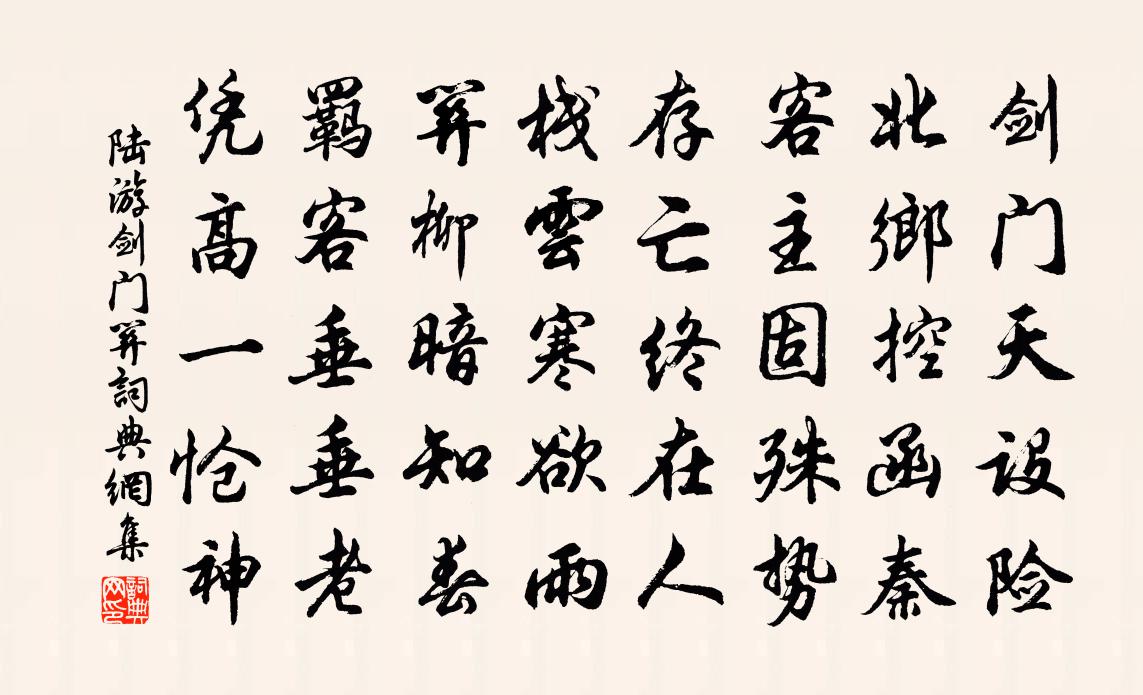 剑门天设险
北鄉控函秦
客主固殊势
存亡终在人
栈雲寒欲雨
关柳暗知春
羈客垂垂老
凭高一怆神
陆游剑门关詞典網集
詞典网印